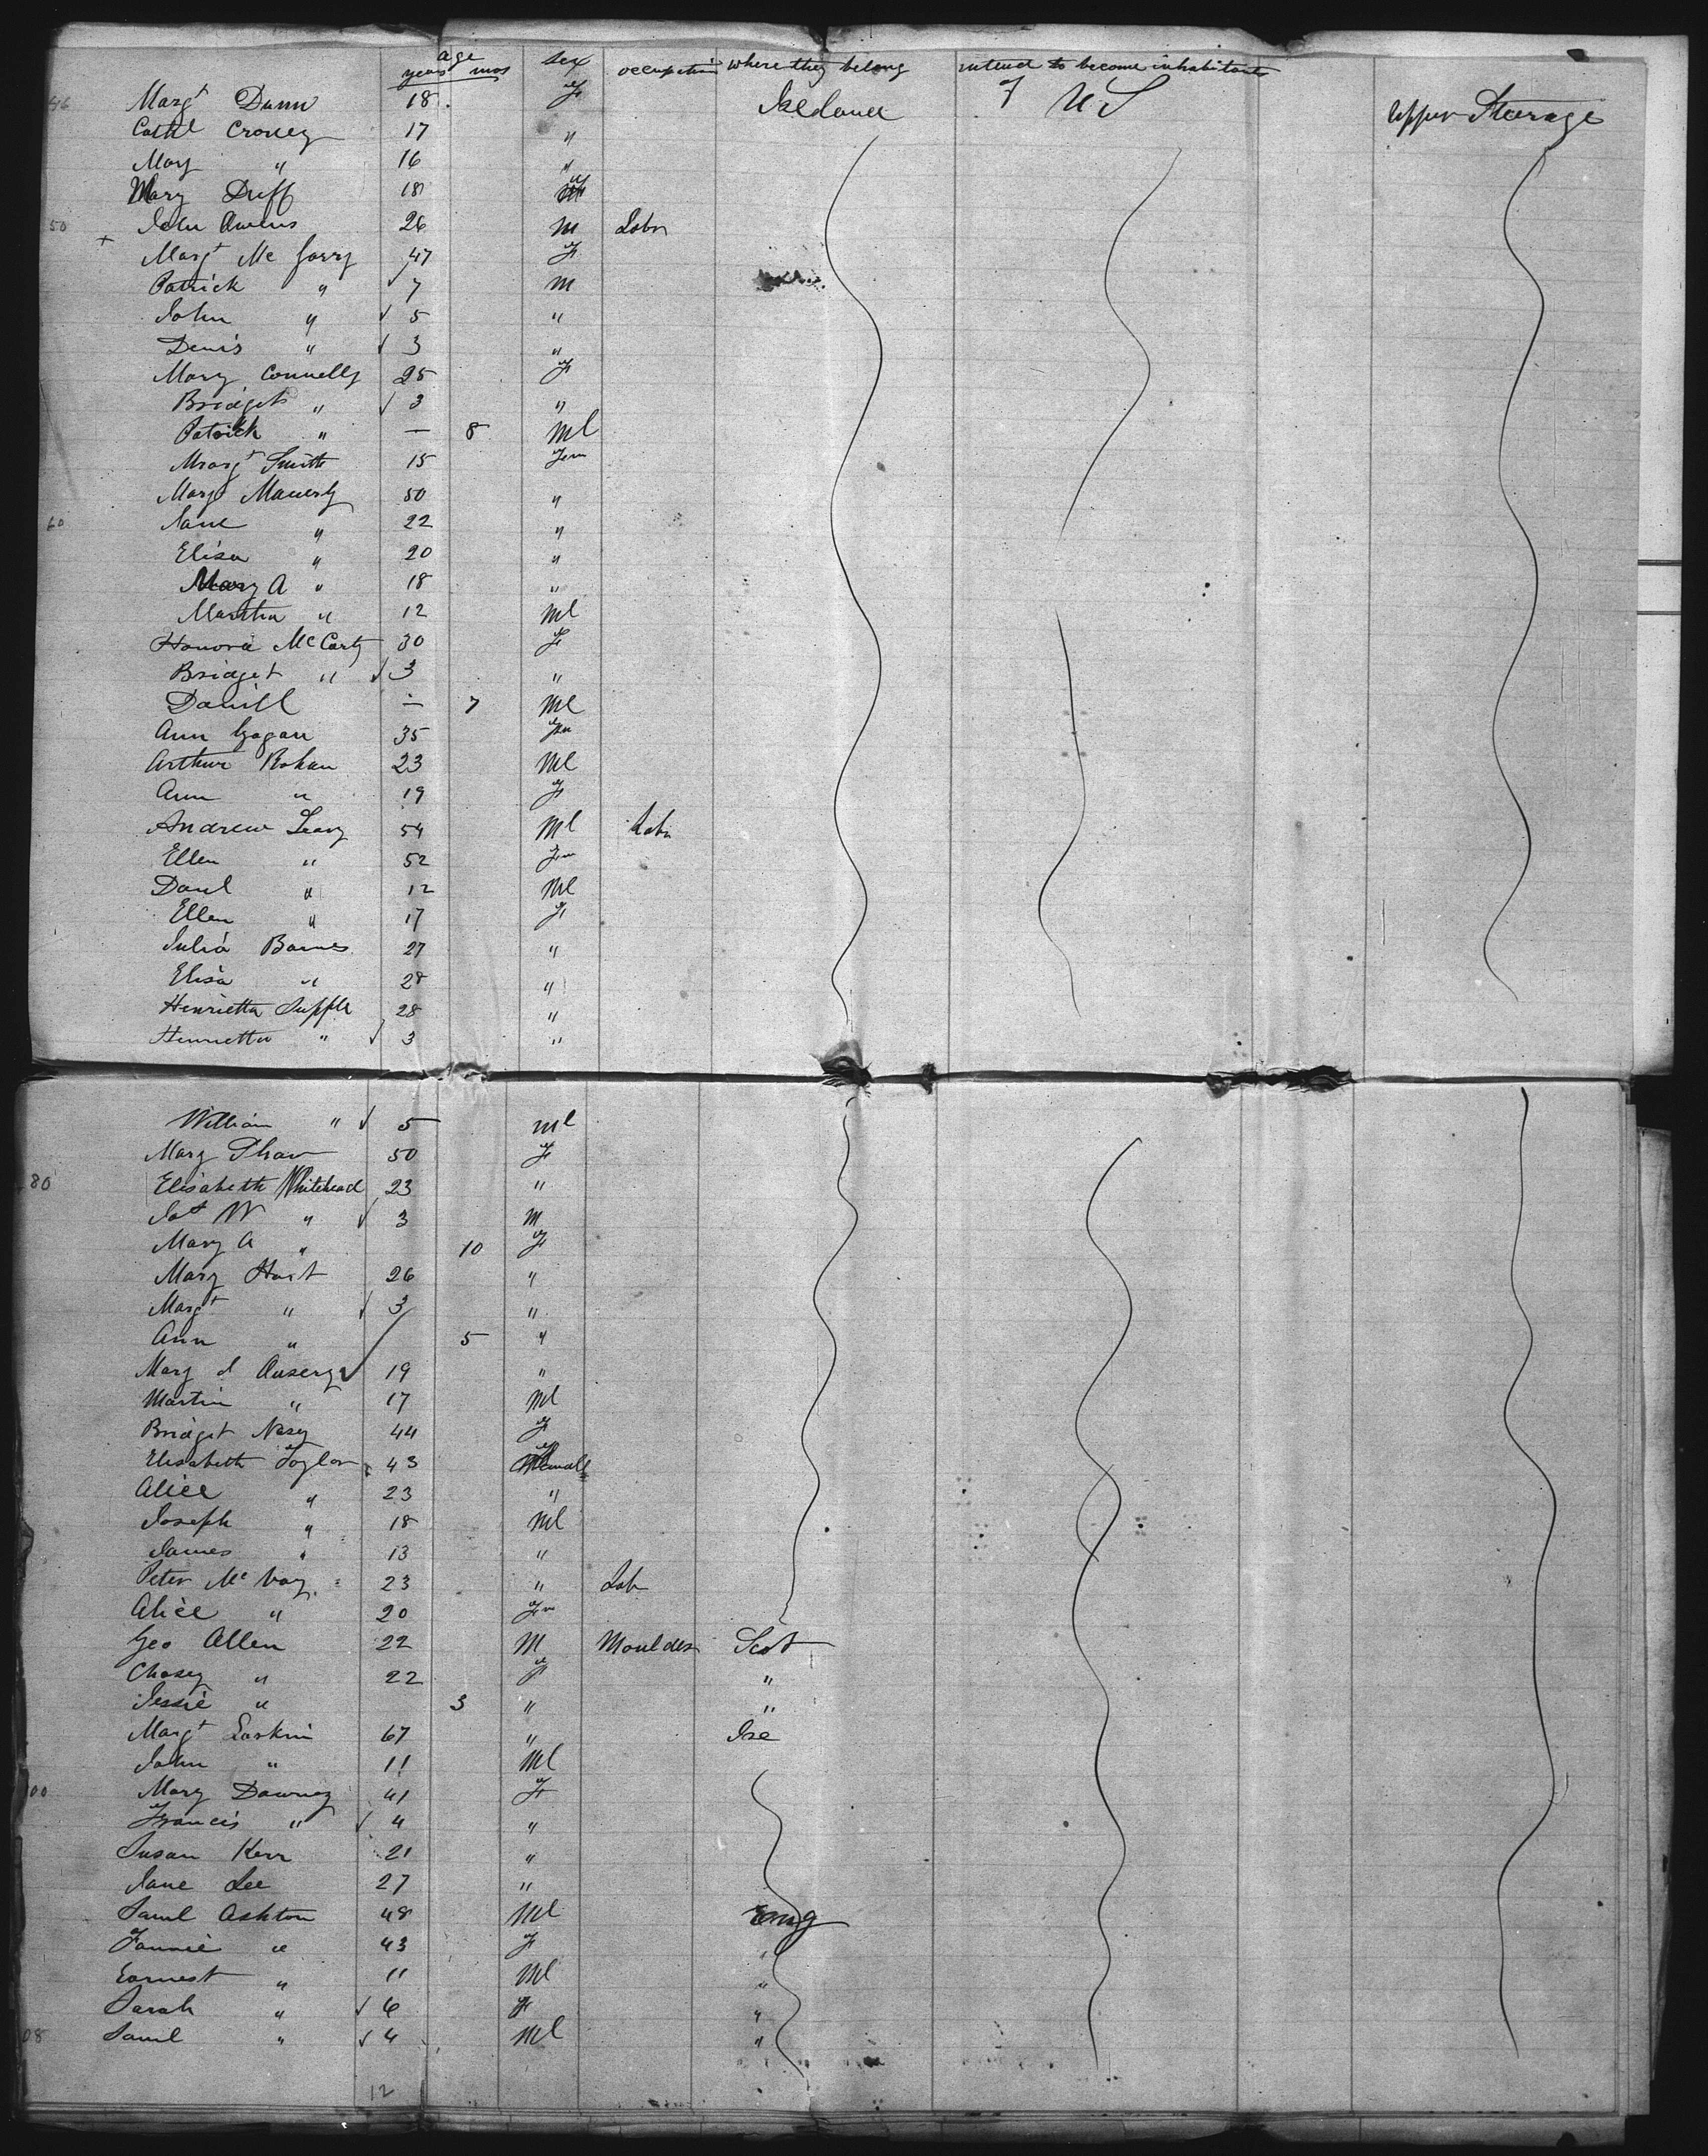 age
years mos sex occupation where they belong intend to become inhabitants of
46 Margt Dunn 18 F Ireland U S Upper Steerage
Cathl Croney 17 "
Mary " 16 "
Mary Duff 18 F
50 John Owens 26 M Labr
+ Margt Mc Garry 47 F
Patrick " √ 7 M
John " √ 5 "
Denis " √ 3 "
Mary Connelly 25 F
Bridget " √ 3 "
Patrick " — 8 Ml
Margt Smith 15 Fem
Mary 50 "
60 Jane " 22 "
Elisa " 20 "
Mary A " 18 "
Martha " 12 Ml
Honora McCarty 30 F
Bridget " √ 3 "
Daniel — 7 Ml
Ann Gagan 35 Fm
Arthur Rohan 23 Ml
Ann " 19 F
Andrew Leary 54 Ml Labr
Ellen " 52 Fm
Danl " 12 Ml
Ellen " 17 F
Julia Barnes 27 "
Elisa " 28 "
Henrietta Supple 28 "
Henrietta " √ 3 "
William " √ 5 Ml
Mary Shaw 50 F
80 Elisabeth Whitehead 23 "
W " √ 3 M
Mary A " 10 F
Mary Hart 26 "
Margt " √ 3 "
Ann " 5 "
Mary 19 "
Martin " 17 Ml
Bridget 44 F
Elisabeth Taylor 43
Alice " 23 "
Joseph " 18 Ml
James " 13 "
Peter Mc Voy 23 " Lab
Alice " 20 Fm
Geo Allen 22 M Moulder Scot
" 22 F "
Jessie " 3 " "
Margt Larkin 67 " Ire
John " 11 Ml
00 Mary Downey 41 F
Francis " √ 4 "
Susan Kerr 21 "
Jane Lee 27 "
Saml Ashton 48 Ml Eng
Fannie " 43 F "
Earnest " 11 Ml "
Sarah " √ 6 F "
08 Saml " √ 4 Ml "
12